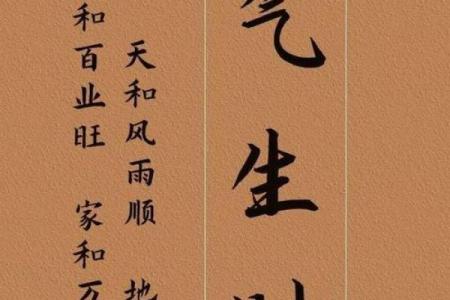 气生
天和风雨顺 地
和百业旺 家和万